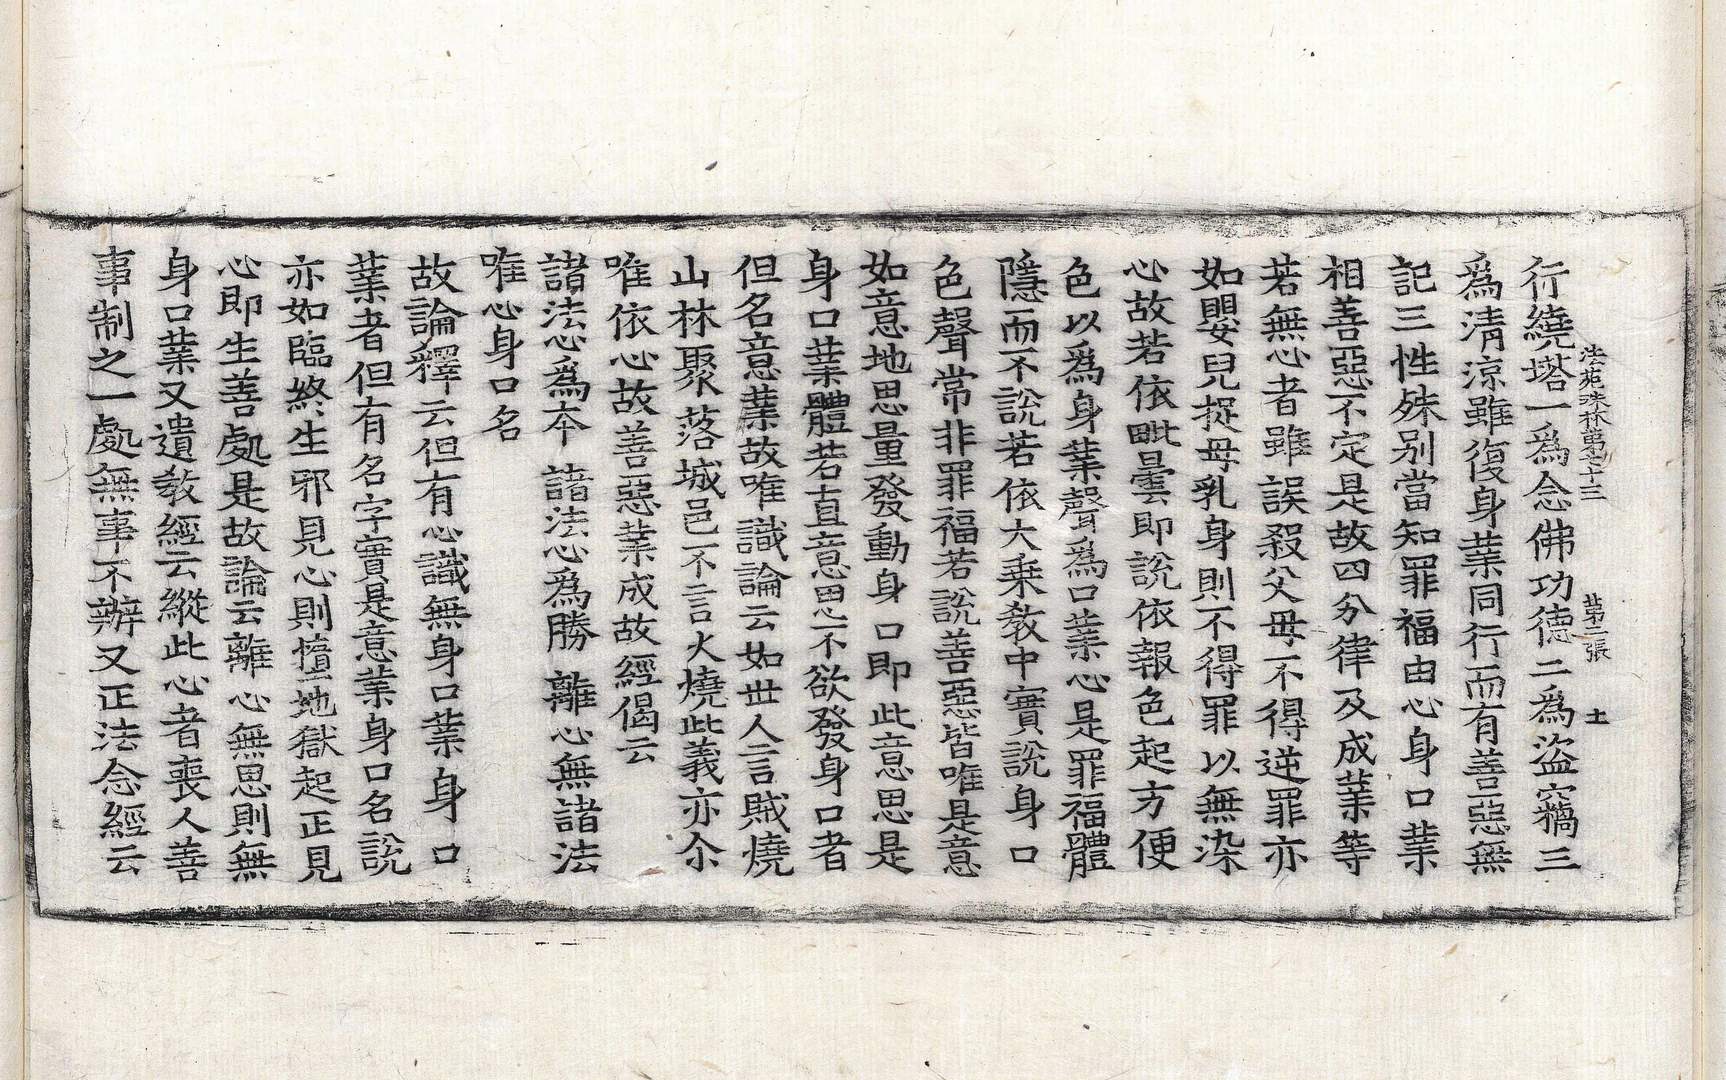 法苑珠林第七十三 第二張 士
行繞塔一為念佛功德二為盜竊三
為清涼雖復身業同行而有善惡無
記三性殊別當知罪福由心身口業
相善惡不定是故四分律及成業等
若無心者雖誤殺父母不得逆罪亦
如嬰兒捉母乳身則不得罪以無染
心故若依毗曇即說依報色起方便
色以為身業聲為口業心是罪福體
隱而不說若依大乗教中實說身口
色聲常非罪福若說善惡皆唯是意
如意地思量發動身口即此意思是
身口業體若直意思不欲發身口者
但名意業故唯識論云如世人言賊燒
山林聚落城邑不言火燒此義亦尒
唯依心故善惡業成故經偈云
諸法心為本 諸法心為勝 離心無諸法
唯心身口名
故論釋云但有心識無身口業身口
業者但有名字實是意業身口名說
亦如臨終生邪見心則墮地獄起正見
心即生善處是故論云離心無思則無
身口業又遺教經云縱此心者喪人善
事制之一處無事不辦又正法念經云